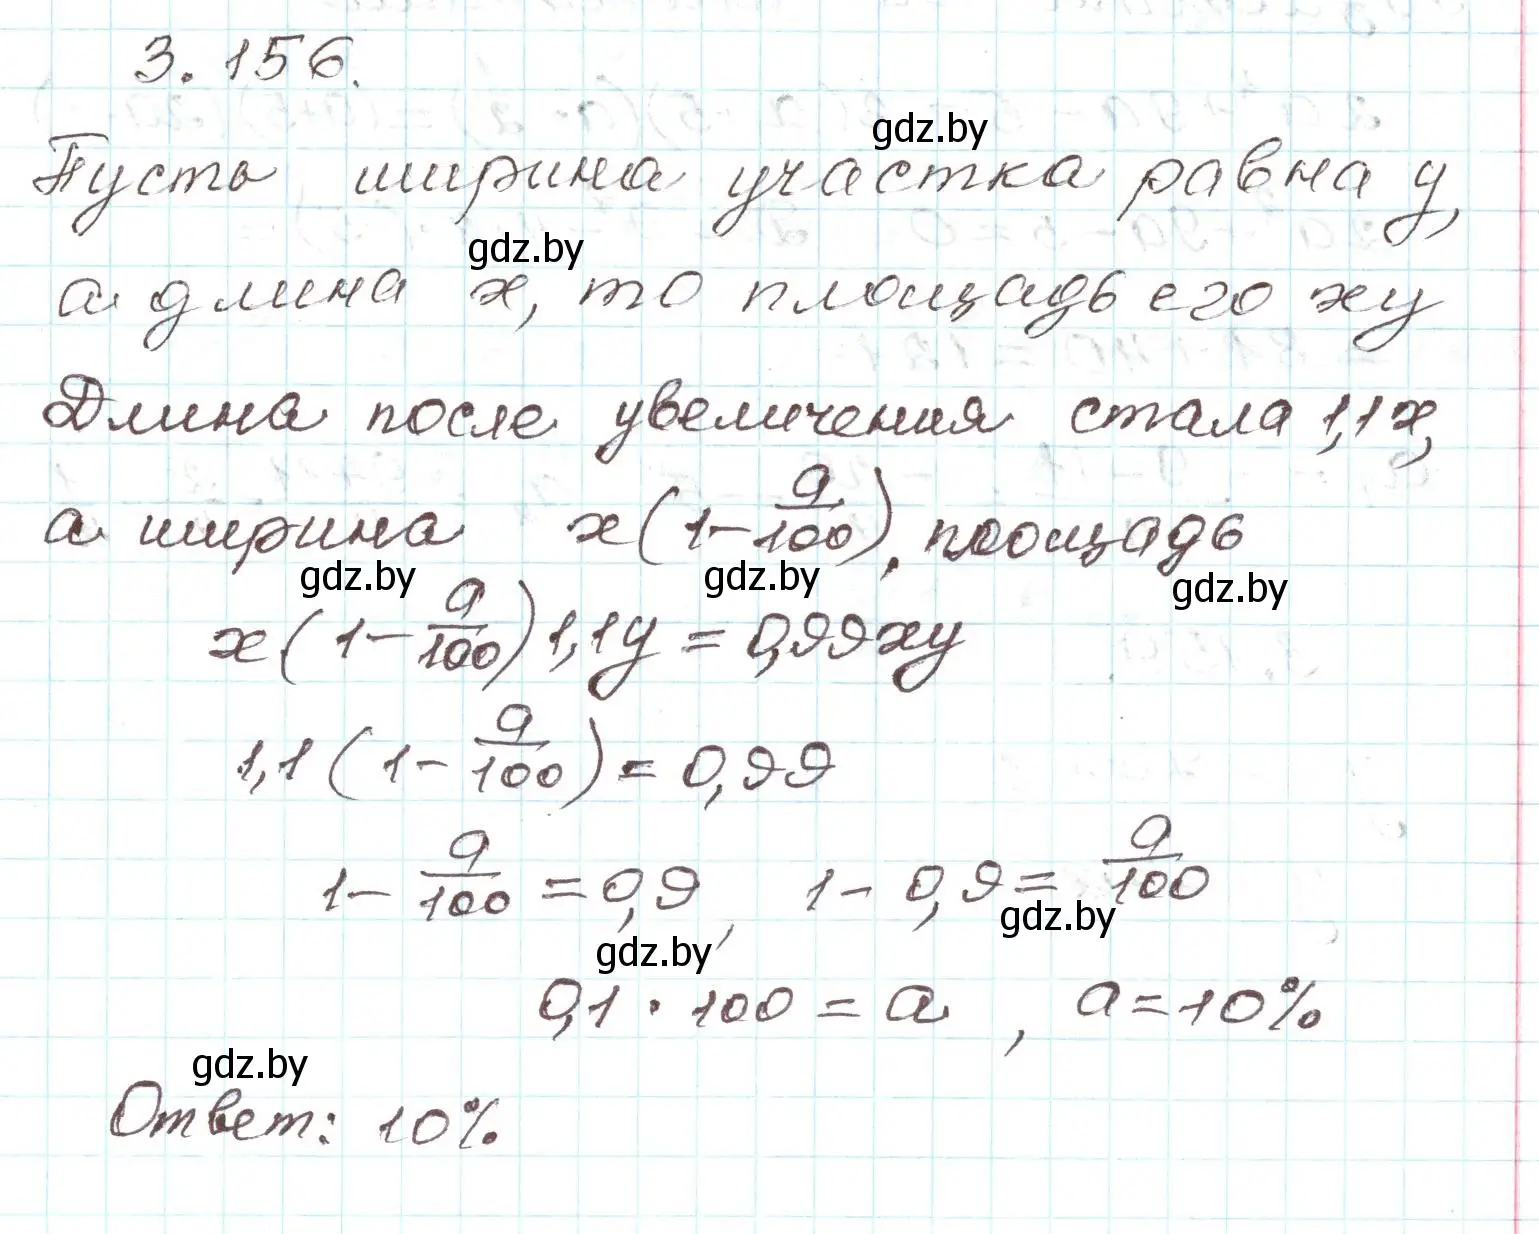 3.156.
gdz.by
Пусть ширина участка равна y,
gdz.by
а длина x, то площадь его xy
Длина после увеличения стала 1,1x,
а ширина x(1-a/100), площадь
gdz.by gdz.by gdz.by
x(1-a/100)1,1y=0,99xy
1,1(1-a/100)=0,99
1-a/100=0,9, 1-0,9=a/100
gdz.by
gdz.by
0,1·100=a, a=10%
gdz.by
Ответ: 10%